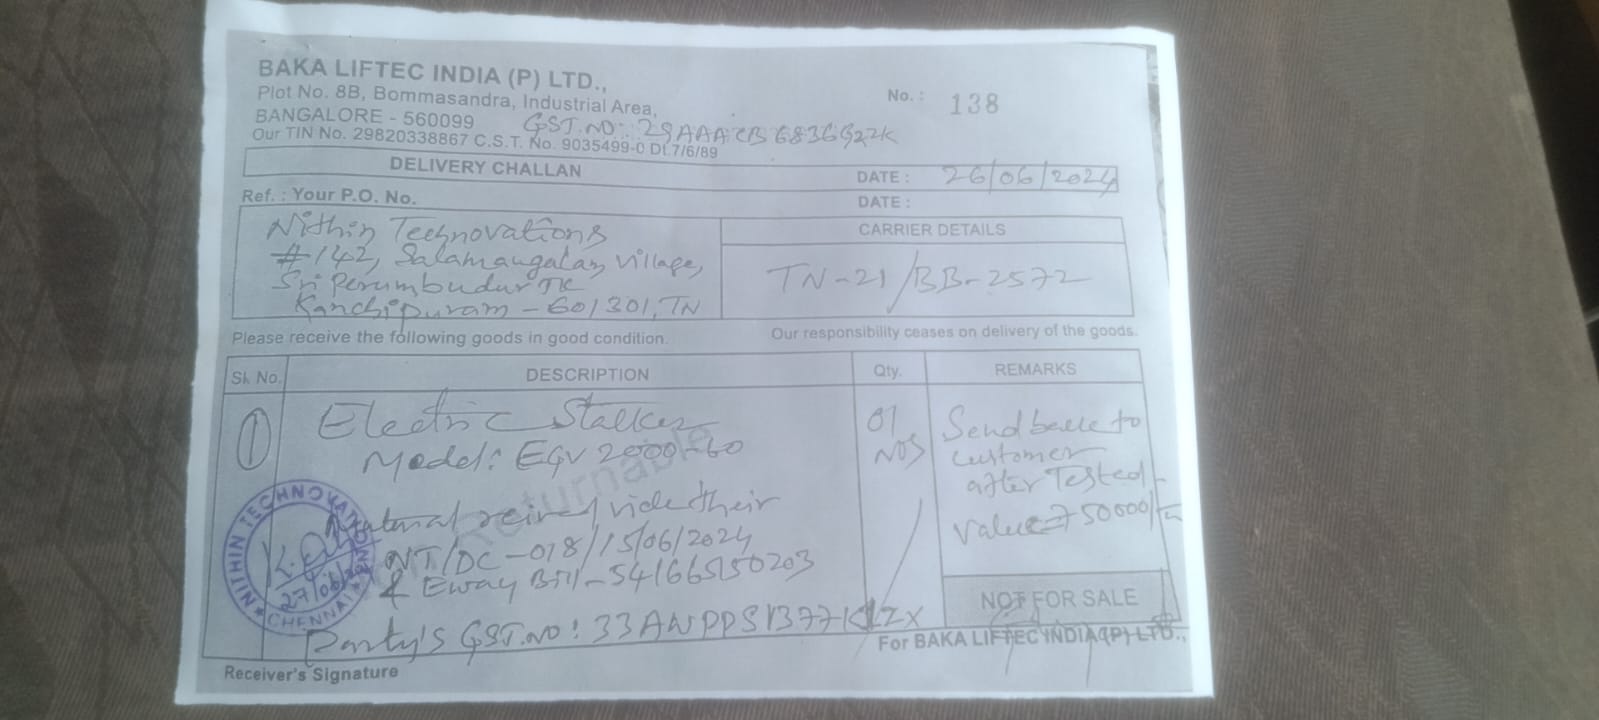 BAKA LIFTEC INDIA (P) LTD.,
Plot No. 8B, Bommasandra, Industrial Area,
BANGALORE - 560099
No. : 138
GST.NO: 29AAACB6836G2ZK
Our TIN No. 29820338867 C.S.T. No. 9035499-0 Dt.7/6/89
DELIVERY CHALLAN
DATE : 26/06/2024
Ref. : Your P.O. No.
DATE :
Nithin Technovations
#142, Salamangalam village,
Sri Perumbudur TK
Kanchipuram - 601301, TN
CARRIER DETAILS
TN-21/BB-2572
Please receive the following goods in good condition.
Our responsibility ceases on delivery of the goods.
Sl. No.
DESCRIPTION
Qty.
REMARKS
1
Electric Stalker
Model: EGV 2000-60
01
NOS
Send back to
customer
after Tested
Value 750000/-
Returnable
vide their
NT/DC-018/15/06/2024
& Eway Bill-541665150203
Party's GST.NO: 33ANPPS1377K1ZX
NITHIN TECHNOVATIONS
CHENNAI
27/06/24
NOT FOR SALE
For BAKA LIFTEC INDIA (P) LTD.,
Receiver's Signature